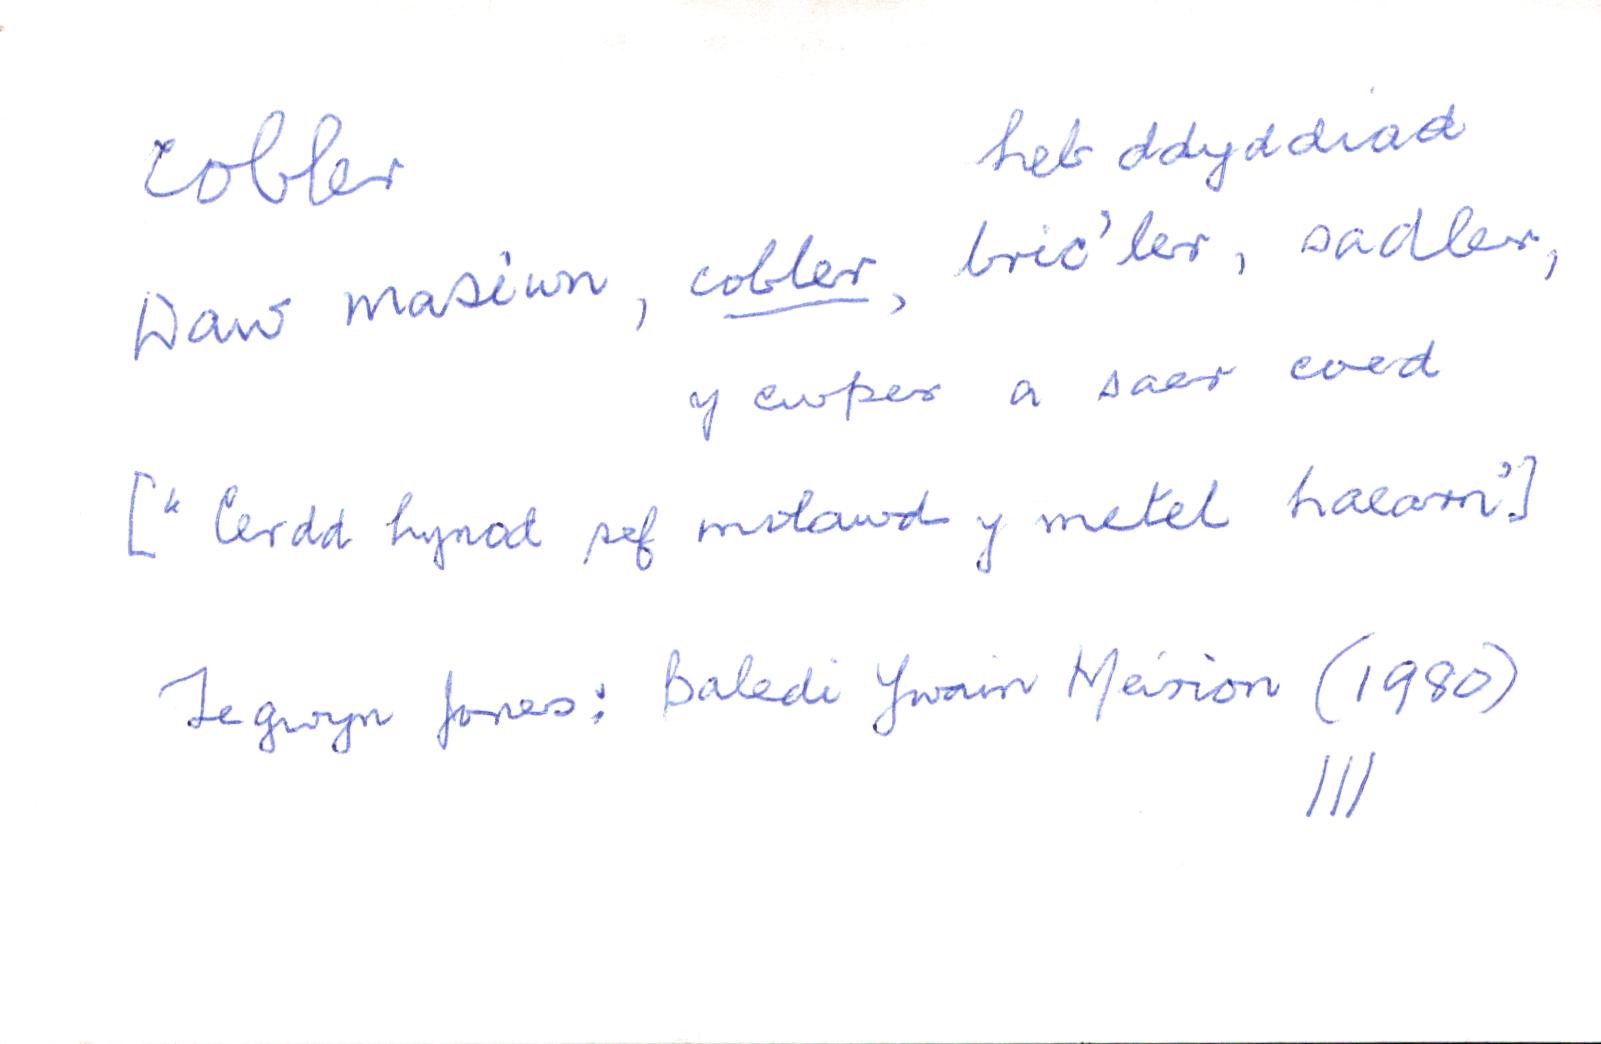 cobler
heb ddyddiad
Daw masiwn, cobler, bric'ler, sadler,
y cwper a saer coed
["Cerdd hynod sef molawd y metel haearn".]
Tegwyn Jones: Baledi Ywain Meirion (1980)
111